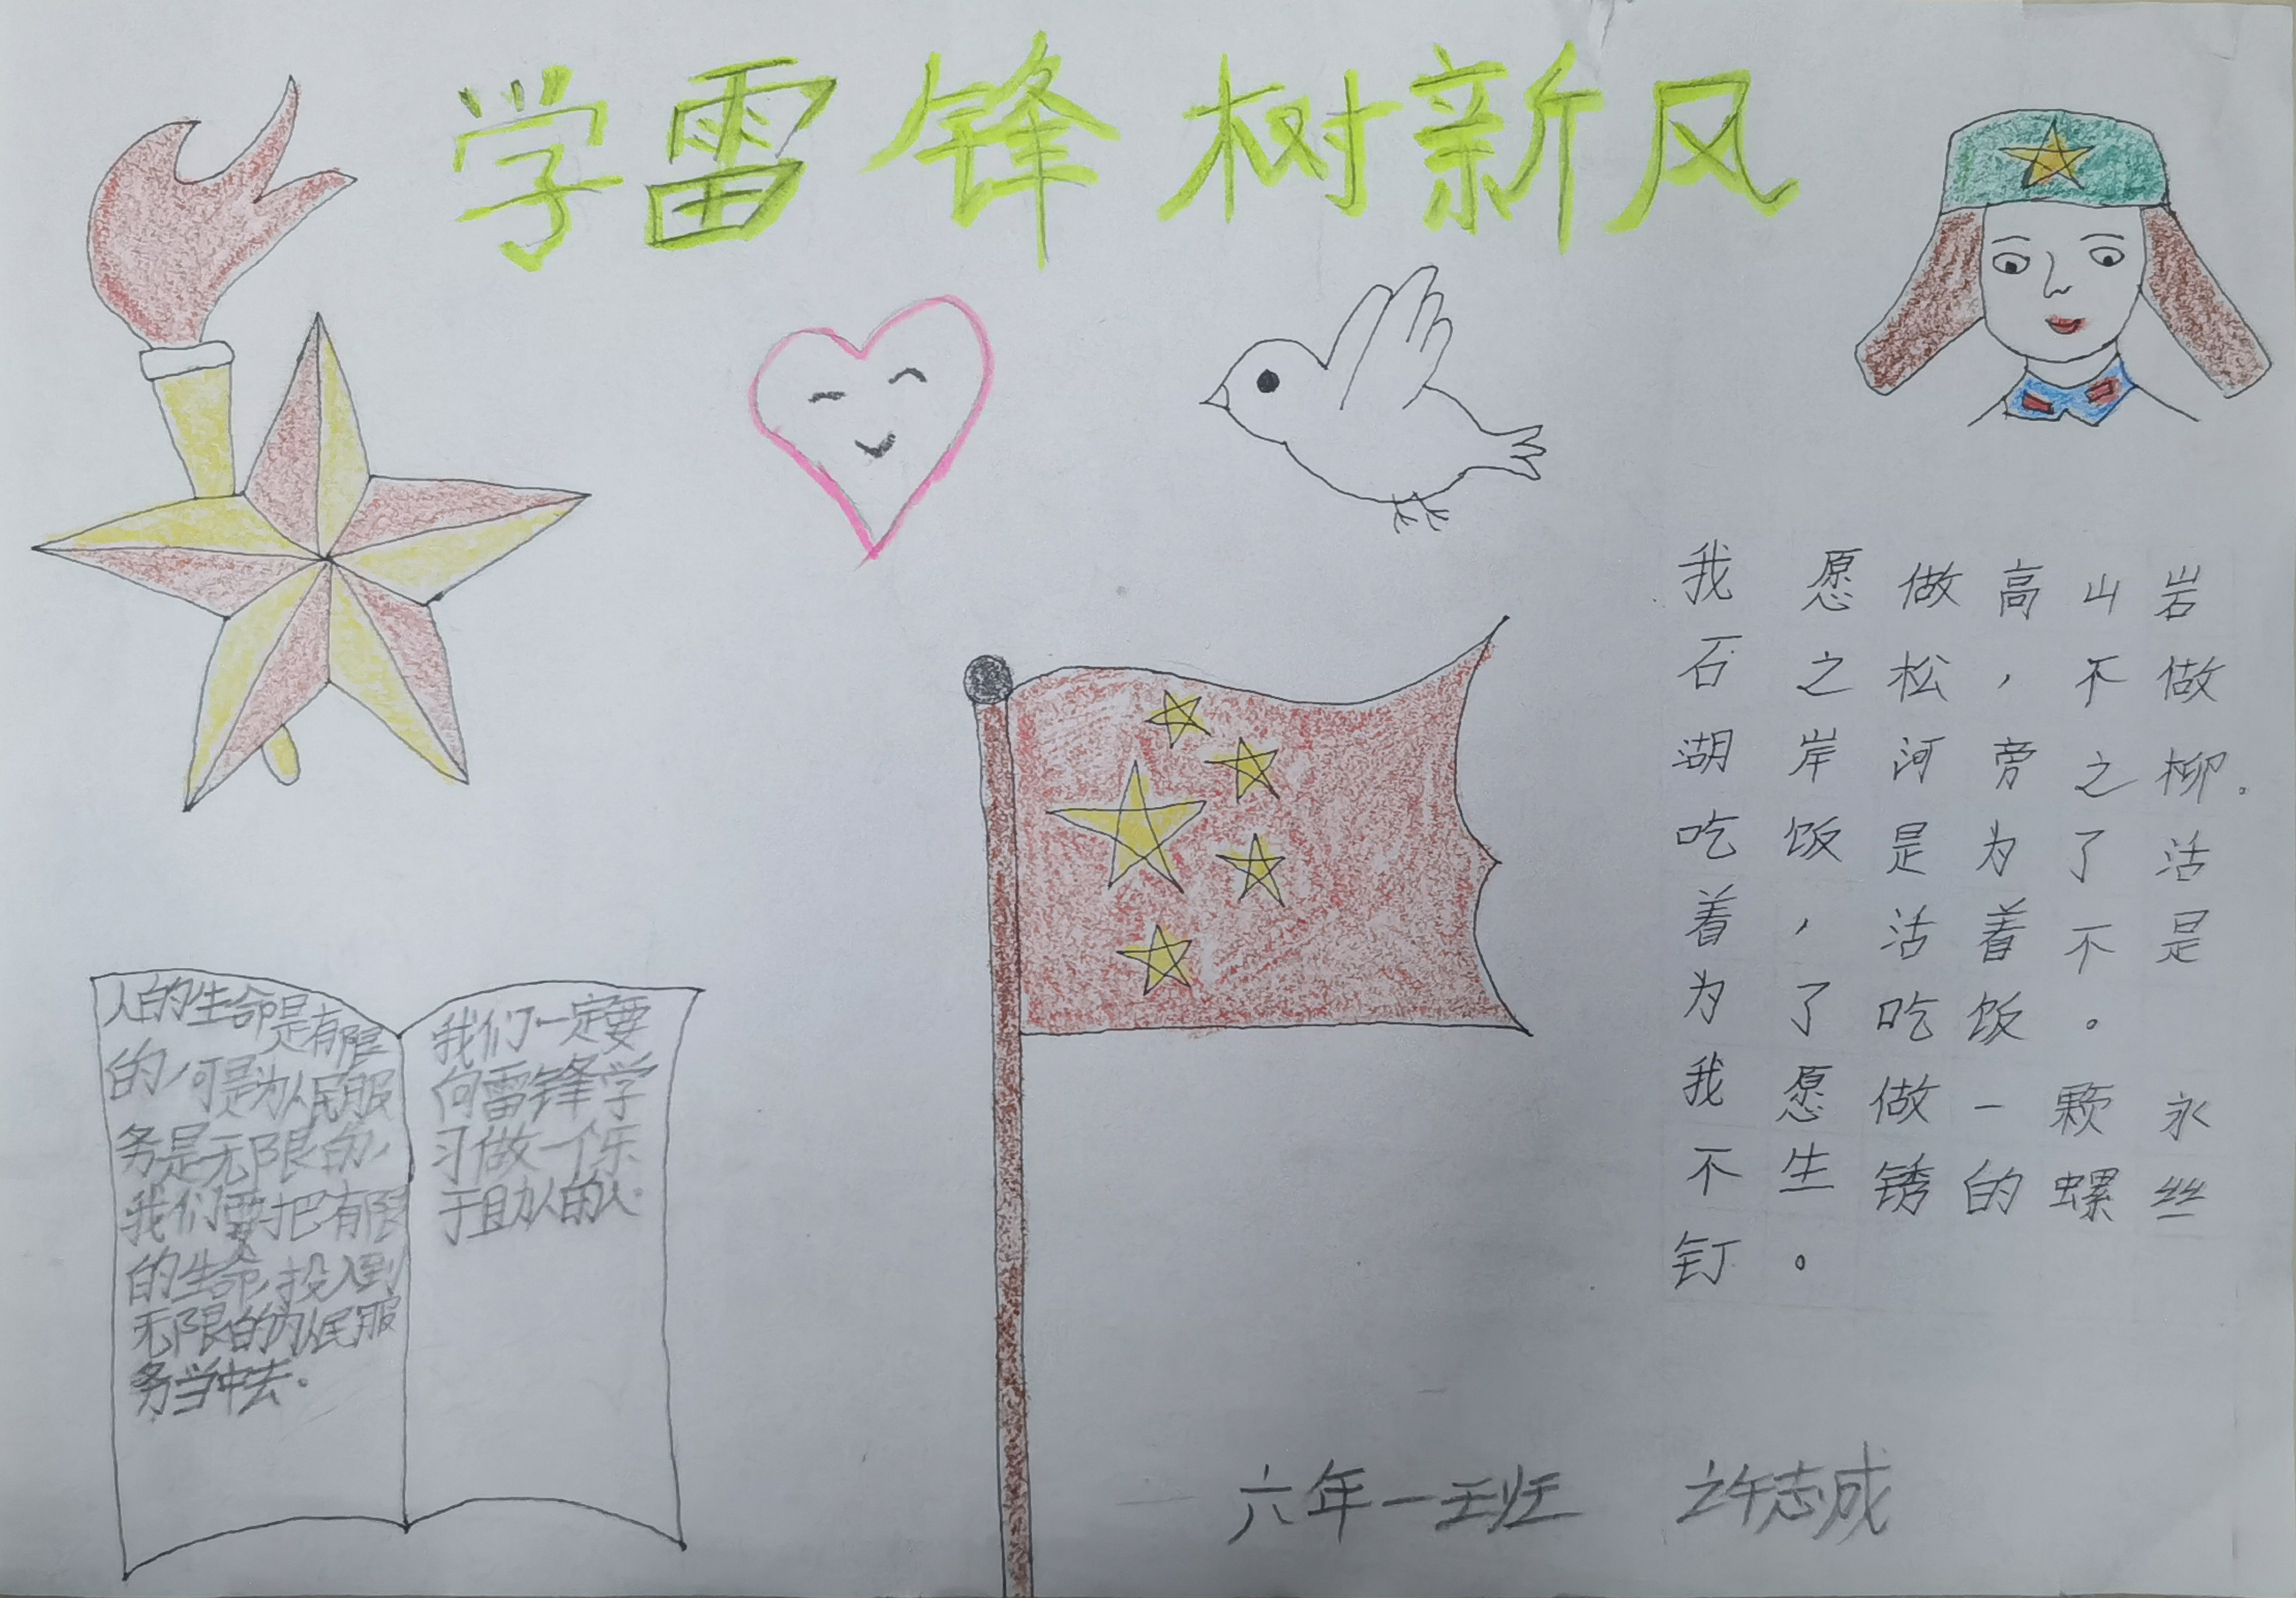 学雷锋树新风
我愿做高山岩
石之松，不做
湖岸河旁之柳。
吃饭是为了活
着，活着不是
为了吃饭。
我愿做一颗永
不生锈的螺丝
钉。
人的生命是有限
的，可是为人民服
务是无限的，
我们要把有限
的生命，投入到
无限的为人民服
务当中去。
我们一定要
向雷锋学
习做一个乐
于助人的人。
六年一班 许志成